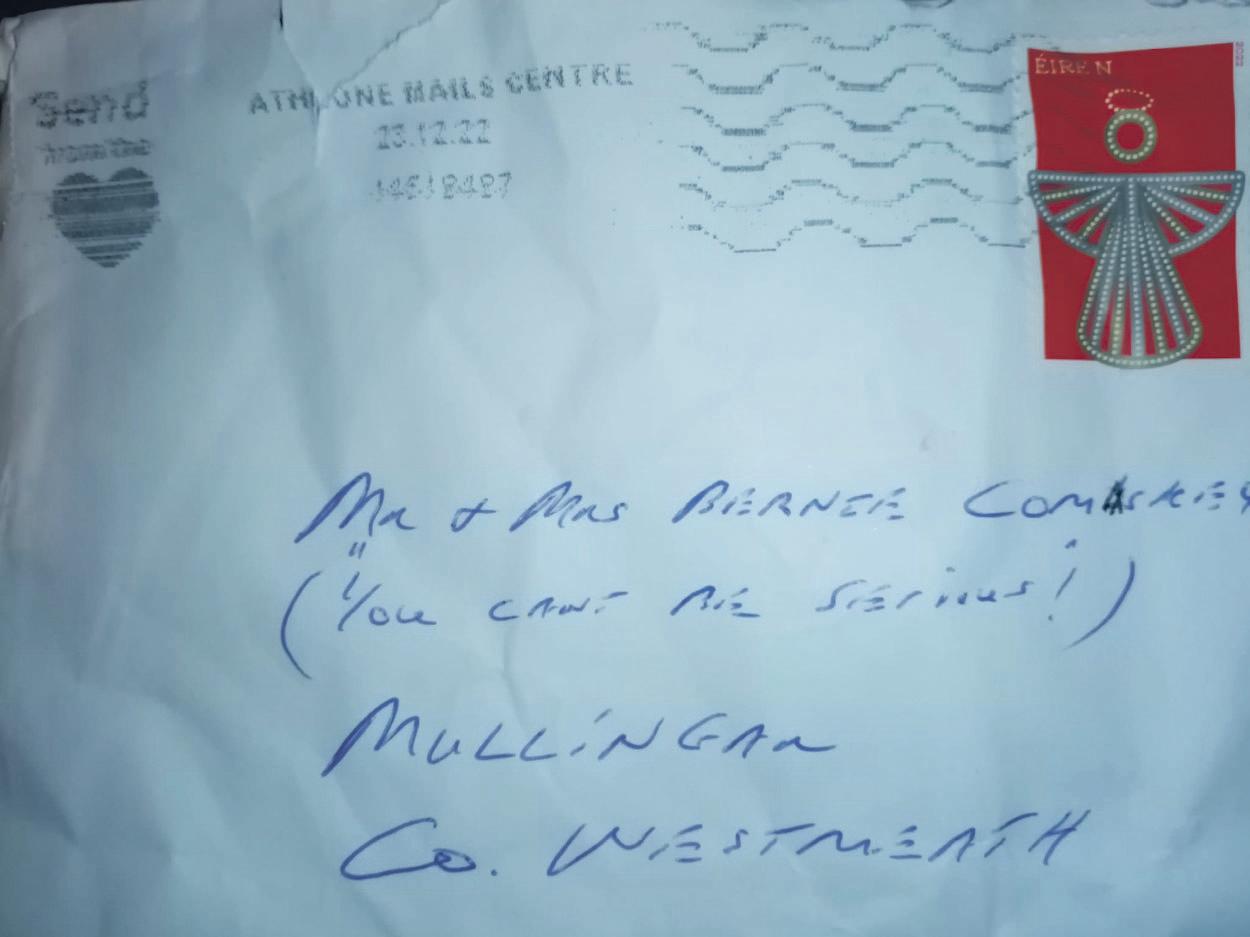 Send
ATHLONE MAILS CENTRE
23.12.22
ÉIRE N
2022
Mr + Mrs BERNEE COMASKEY
("You CANT BE SERious!)
MULLiNGAR
Co. WESTMEATH